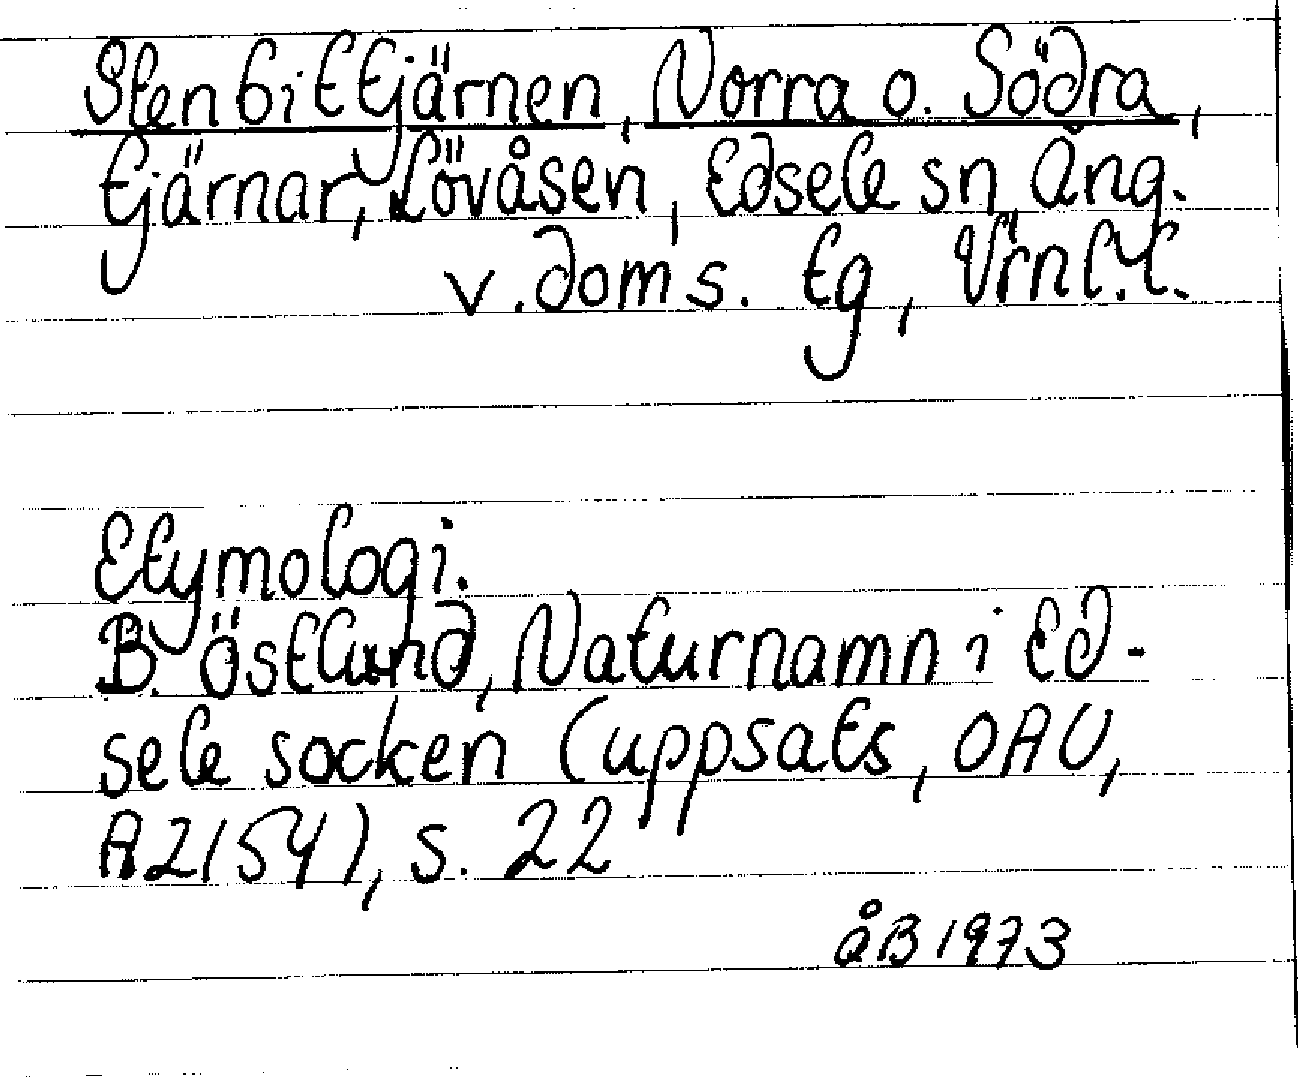 Stenbittjärnen, Norra o. Södra,
tjärnar, Lövåsen, Edsele sn Ång.
v. doms. tg, Vrnl. l.
Etymologi.
B. Östlund, Naturnamn i Ed-
sele socken (uppsats, OAU,
A2154), s. 22
åB 1973